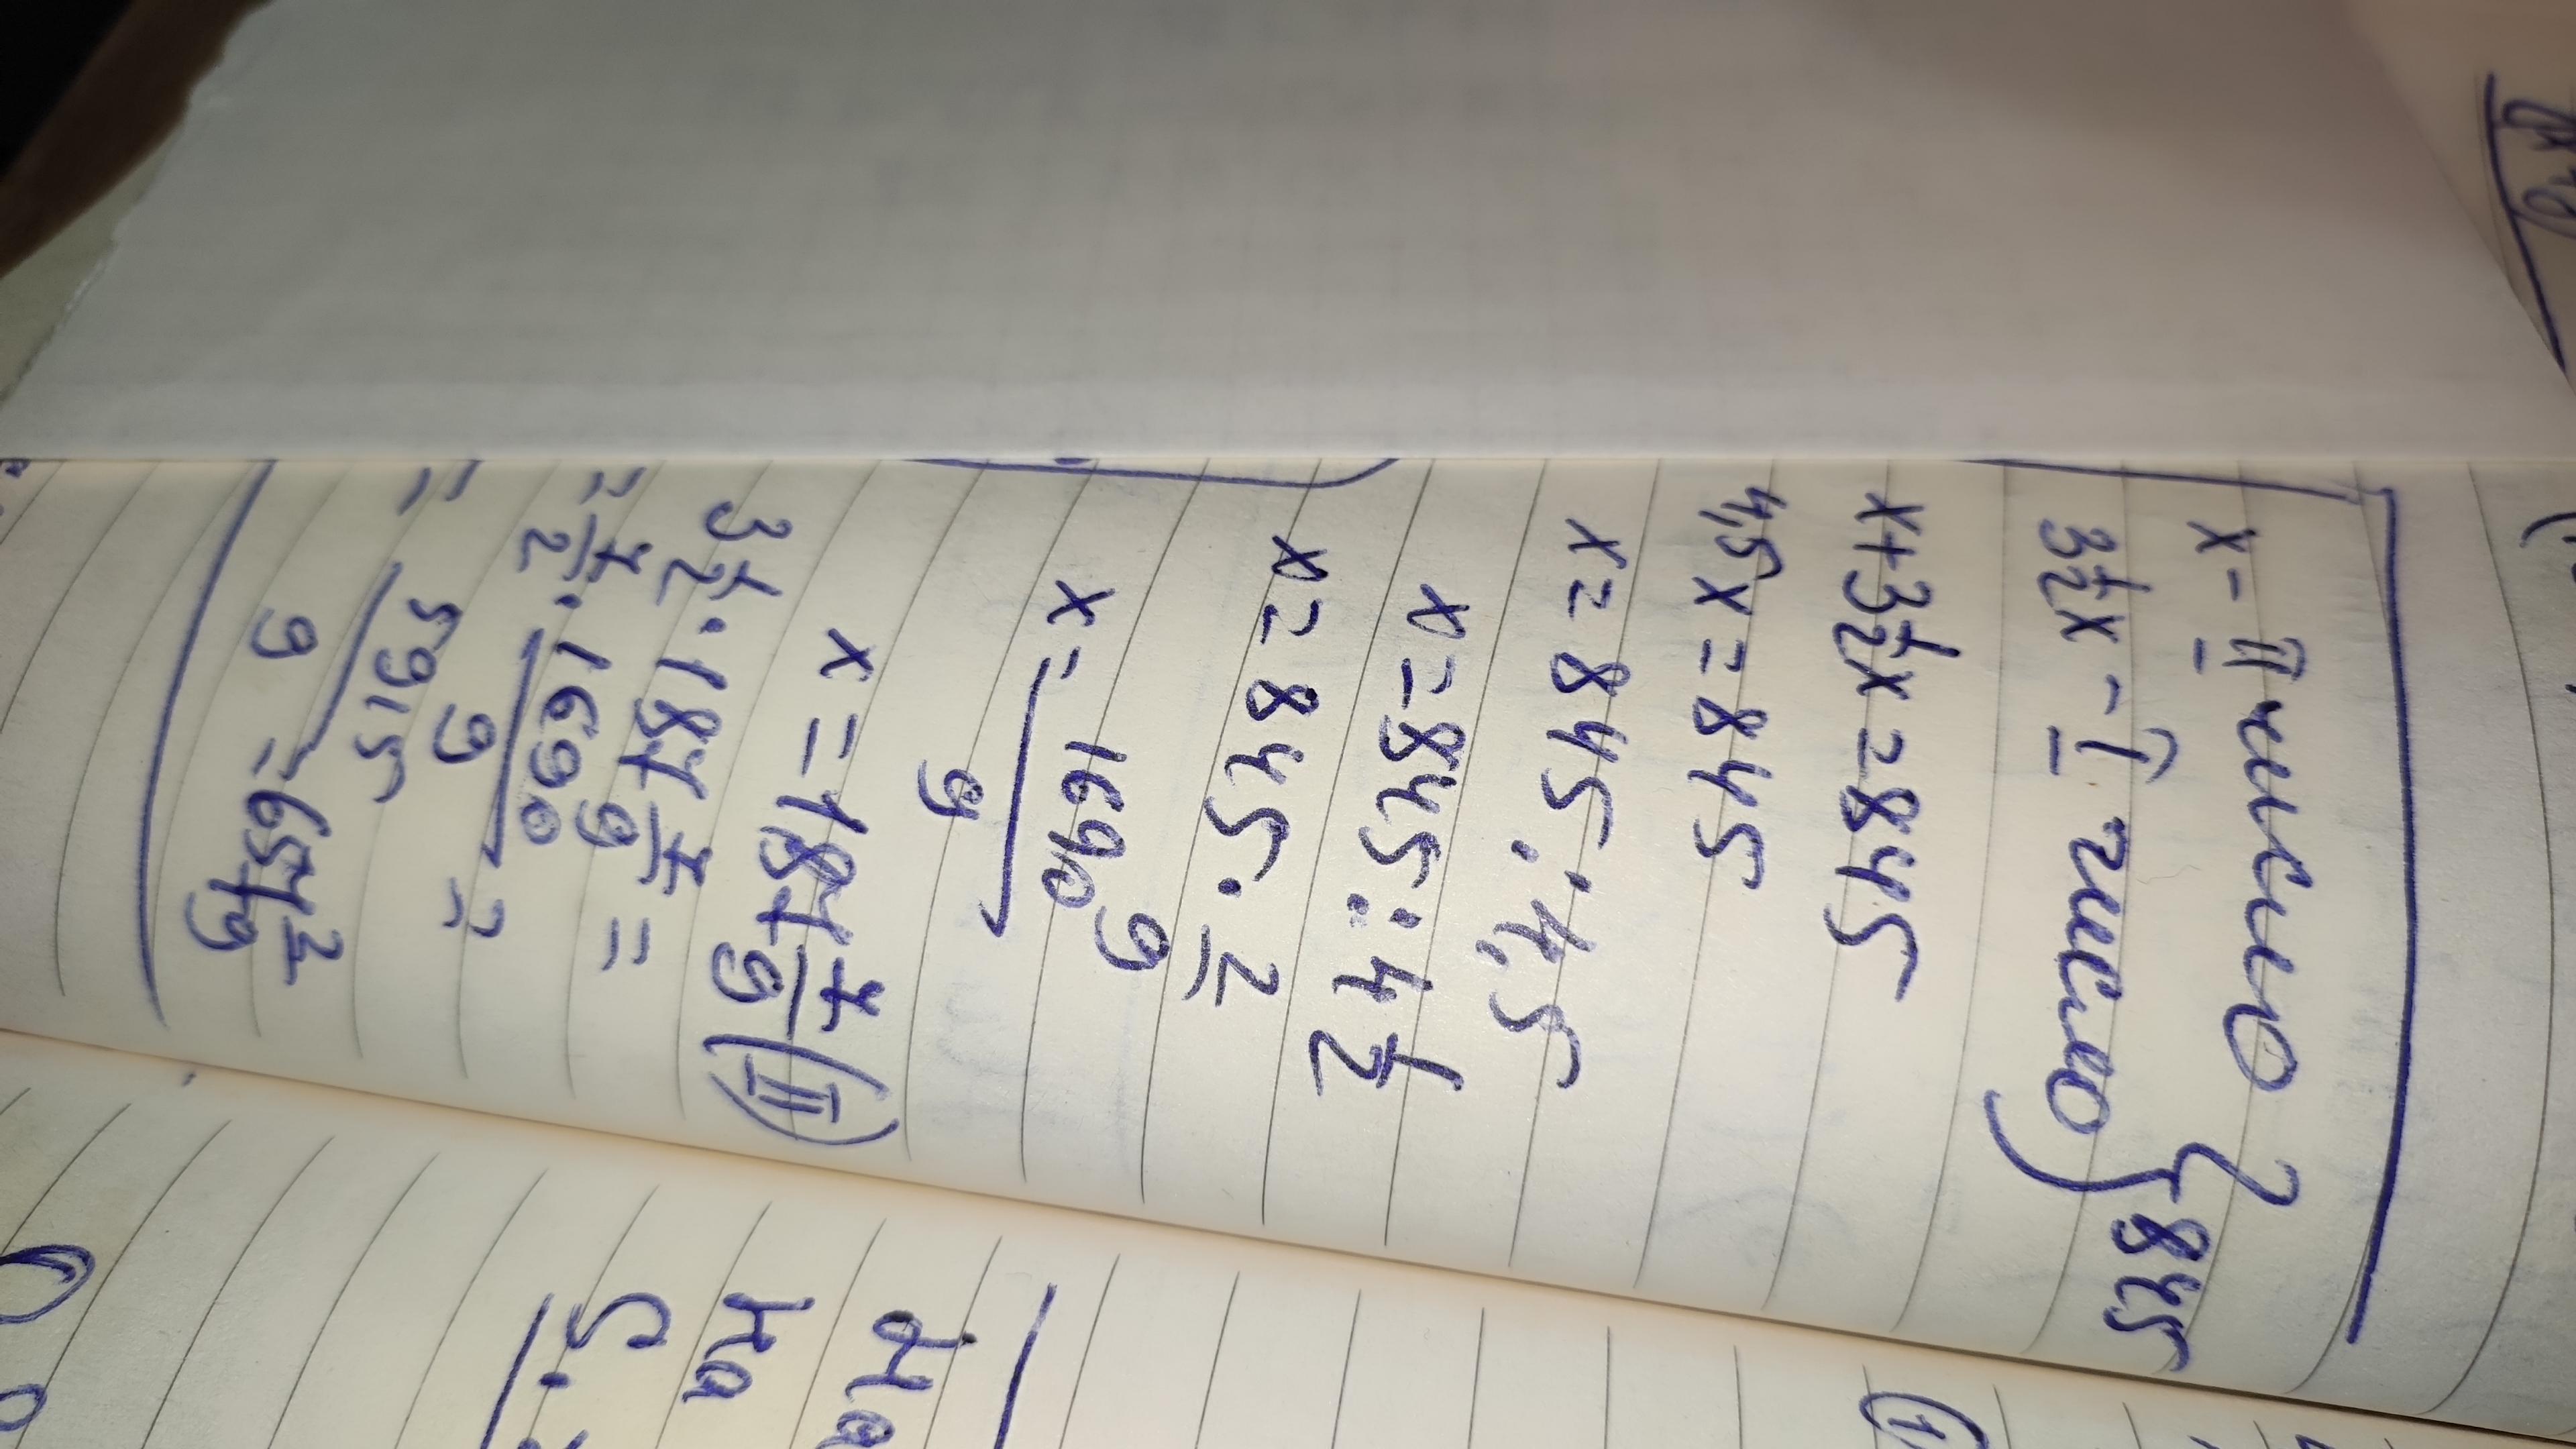 x - II число } 845
3 1/2 x - I число
x + 3 1/2 x = 845
4,5x = 845
x = 845 : 4,5
x = 845 : 4 1/2
x = 845 : 9/2
x = 1690/9
x = 187 7/9 (II)
3 1/2 · 187 7/9 =
= 7/2 · 1690/9 =
= 5915/9 = 657 2/9
На
на